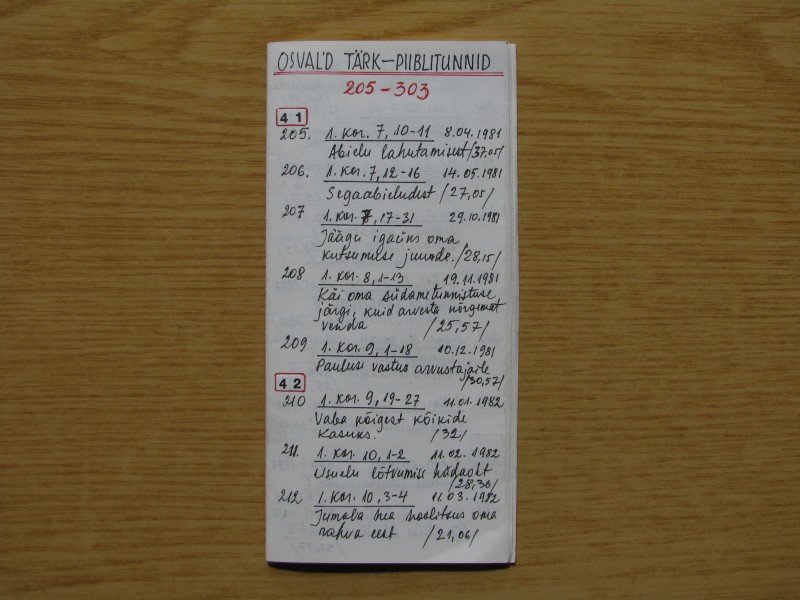 OSVALD TÄRK-PIIBLITUNNID
205-303
41
205. 1. Kor. 7, 10-11 8.04.1981
Abielu lahutamisest /37,05/
206. 1. Kor. 7, 12-16 14.05.1981
Segaabieludest /27,05/
207 1. Kor. 7, 17-31 29.10.1981
Jäägu igaüks oma
kutsumise juurde. /28,15/
208 1. Kor. 8, 1-13 19.11.1981
Käi oma südametunnistuse
järgi, kuid arvesta nõrgemat
venda /25,57/
209 1. Kor. 9, 1-18 10.12.1981
Pauluse vastus arvustajaile
/30,57/
42
210 1. Kor. 9, 19-27 11.01.1982
Vaba kõigest kõikide
kasuks. /32/
211. 1. Kor. 10, 1-2 11.02.1982
Usuelu lõtvumise hädaoht
/28,36/
212 1. Kor. 10, 3-4 11.03.1982
Jumala hea hoolitsus oma
rahva eest /21,06/